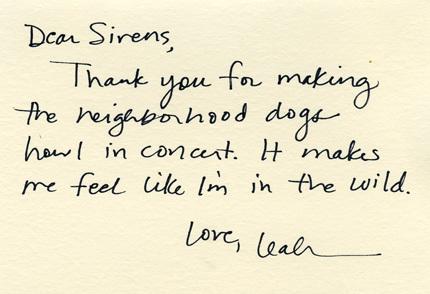 Dear Sirens,
Thank you for making
the neighborhood dogs
howl in concert. It makes
me feel like I'm in the wild.
Love, Leah